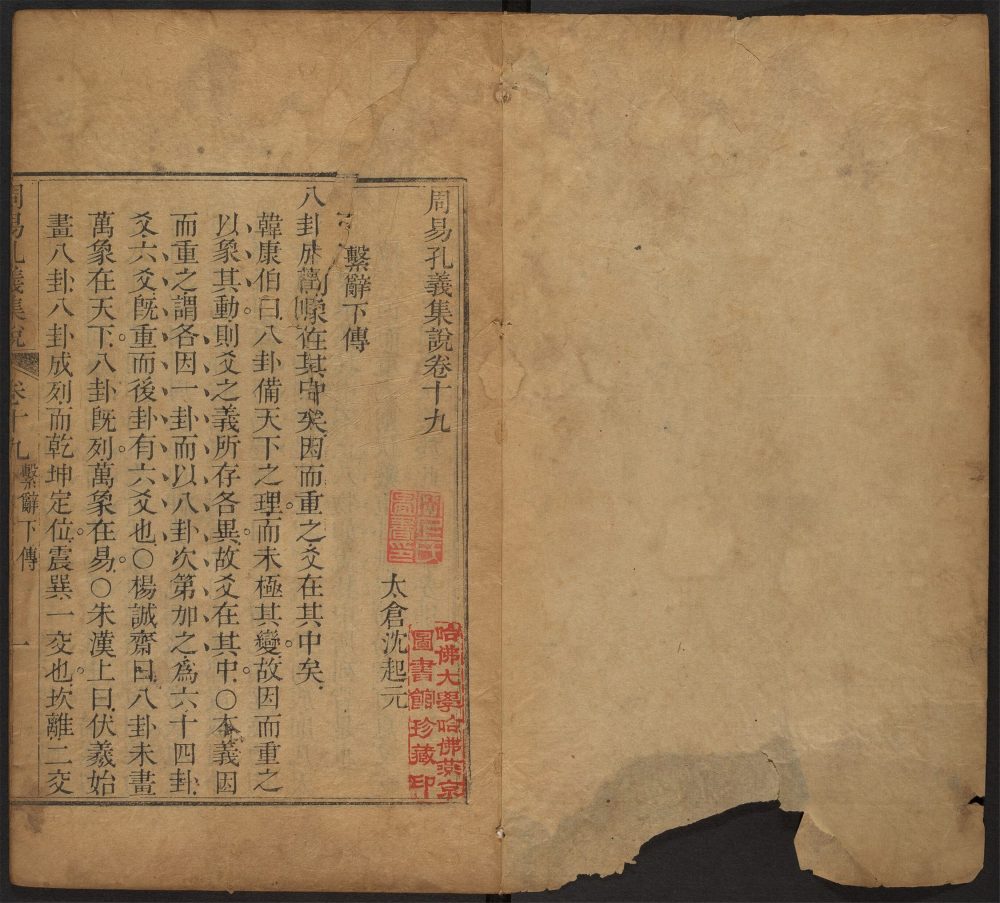 周易孔義集說卷十九
太倉沈起元
繫辭下傳
八卦成列象在其中矣因而重之爻在其中矣
韓康伯曰八卦備天下之理而未極其變故因而重之
以象其動則爻之義所存各異故爻在其中〇本義因
而重之謂各因一卦而以八卦次第加之爲六十四卦
爻六爻旣重而後卦有六爻也〇楊誠齋曰八卦未畫
萬象在天下八卦旣列萬象在易〇朱漢上曰伏羲始
畫八卦八卦成列而乾坤定位震巽一交也坎離二交
周易孔義集說
卷十九
繫辭下傳
一
哈佛大學哈佛燕京
圖書館珍藏印